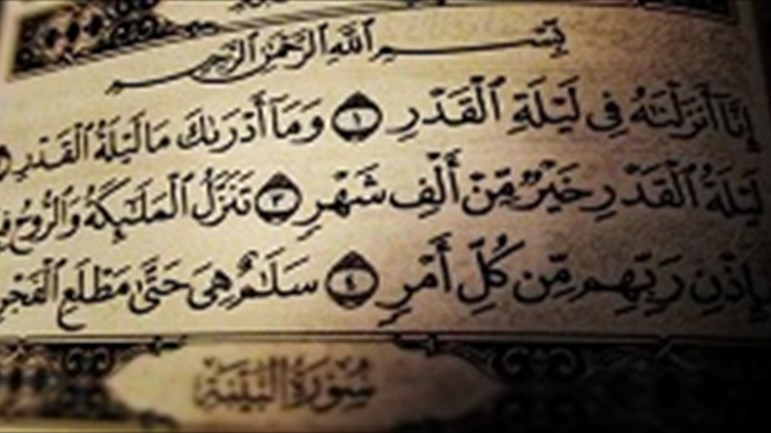 بِسْمِ اللَّهِ الرَّحْمَٰنِ الرَّحِيمِ
إِنَّا أَنْزَلْنَاهُ فِي لَيْلَةِ الْقَدْرِ ١ وَمَا أَدْرَاكَ مَا لَيْلَةُ الْقَدْرِ
لَيْلَةُ الْقَدْرِ خَيْرٌ مِّنْ أَلْفِ شَهْرٍ ٣ تَنَزَّلُ الْمَلَائِكَةُ وَالرُّوحُ
بِإِذْنِ رَبِّهِم مِّن كُلِّ أَمْرٍ ٤ سَلَامٌ هِيَ حَتَّىٰ مَطْلَعِ الْفَجْرِ
سُورَةُ الْبَيِّنَةِ